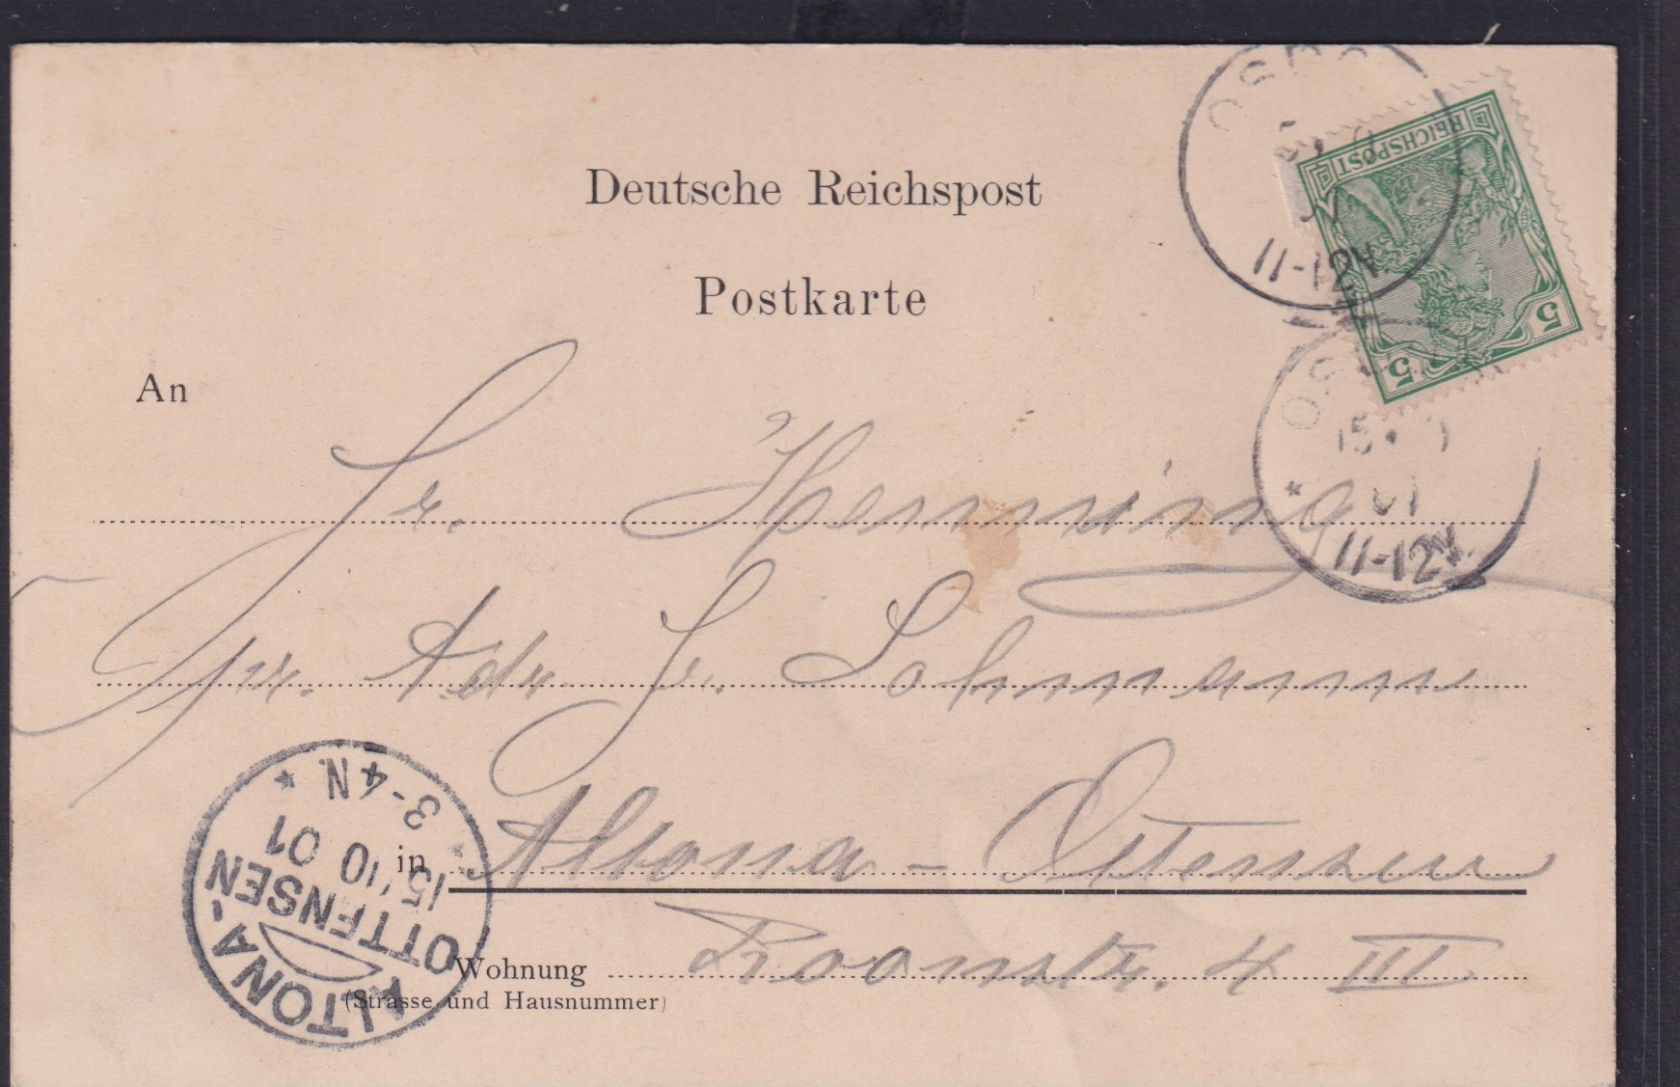 Deutsche Reichspost
Postkarte
An
Fr. Henning
pr. Adr. Fr. Lohmann
in Altona-Ottensen
Wohnung Roonstr. 4 III
(Strasse und Hausnummer)
REICHSPOST
5 5
11-12V.
15
01
11-12V.
ALTONA.
OTTENSEN
15/10 01
3-4N.